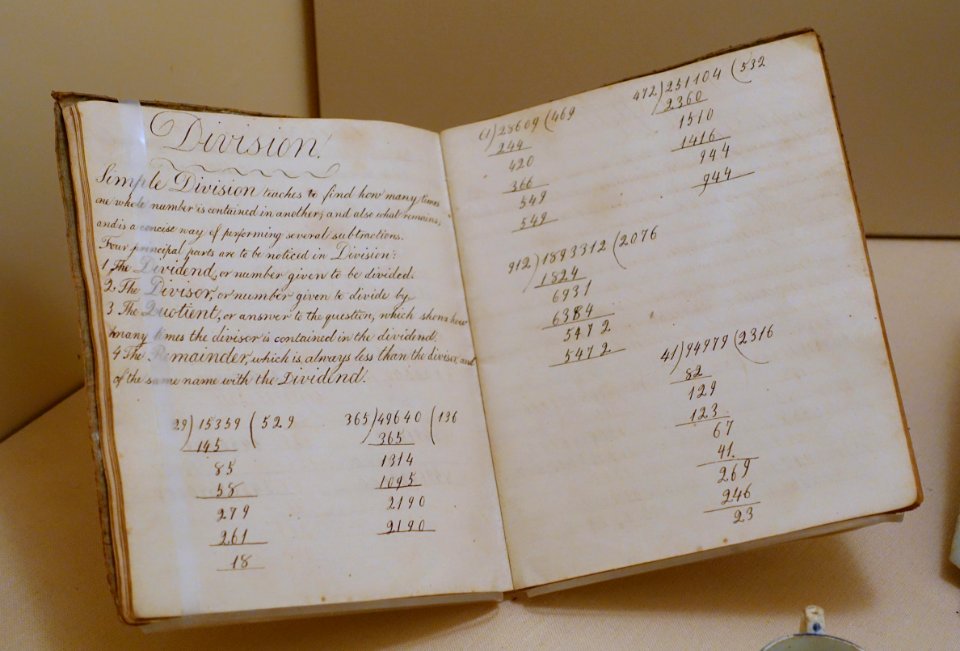 Division.
Simple Division teaches to find how many times
one whole number is contained in another; and also what remains,
and is a concise way of performing several subtractions.
Four principal parts are to be noticed in Division:
1. The Dividend, or number given to be divided.
2. The Divisor, or number given to divide by
3. The Quotient, or answer to the question, which shows how
many times the divisor is contained in the dividend.
4. The Remainder, which is always less than the divisor, and
of the same name with the Dividend.
29)15359(529
145
85
58
279
261
18
365)49640(136
365
1314
1095
2190
2190
61)28609(469
244
420
366
549
549
472)251104(532
2360
1510
1416
944
944
912)1893312(2076
1824
6931
6384
5472
5472
41)94979(2316
82
129
123
67
41
269
246
23